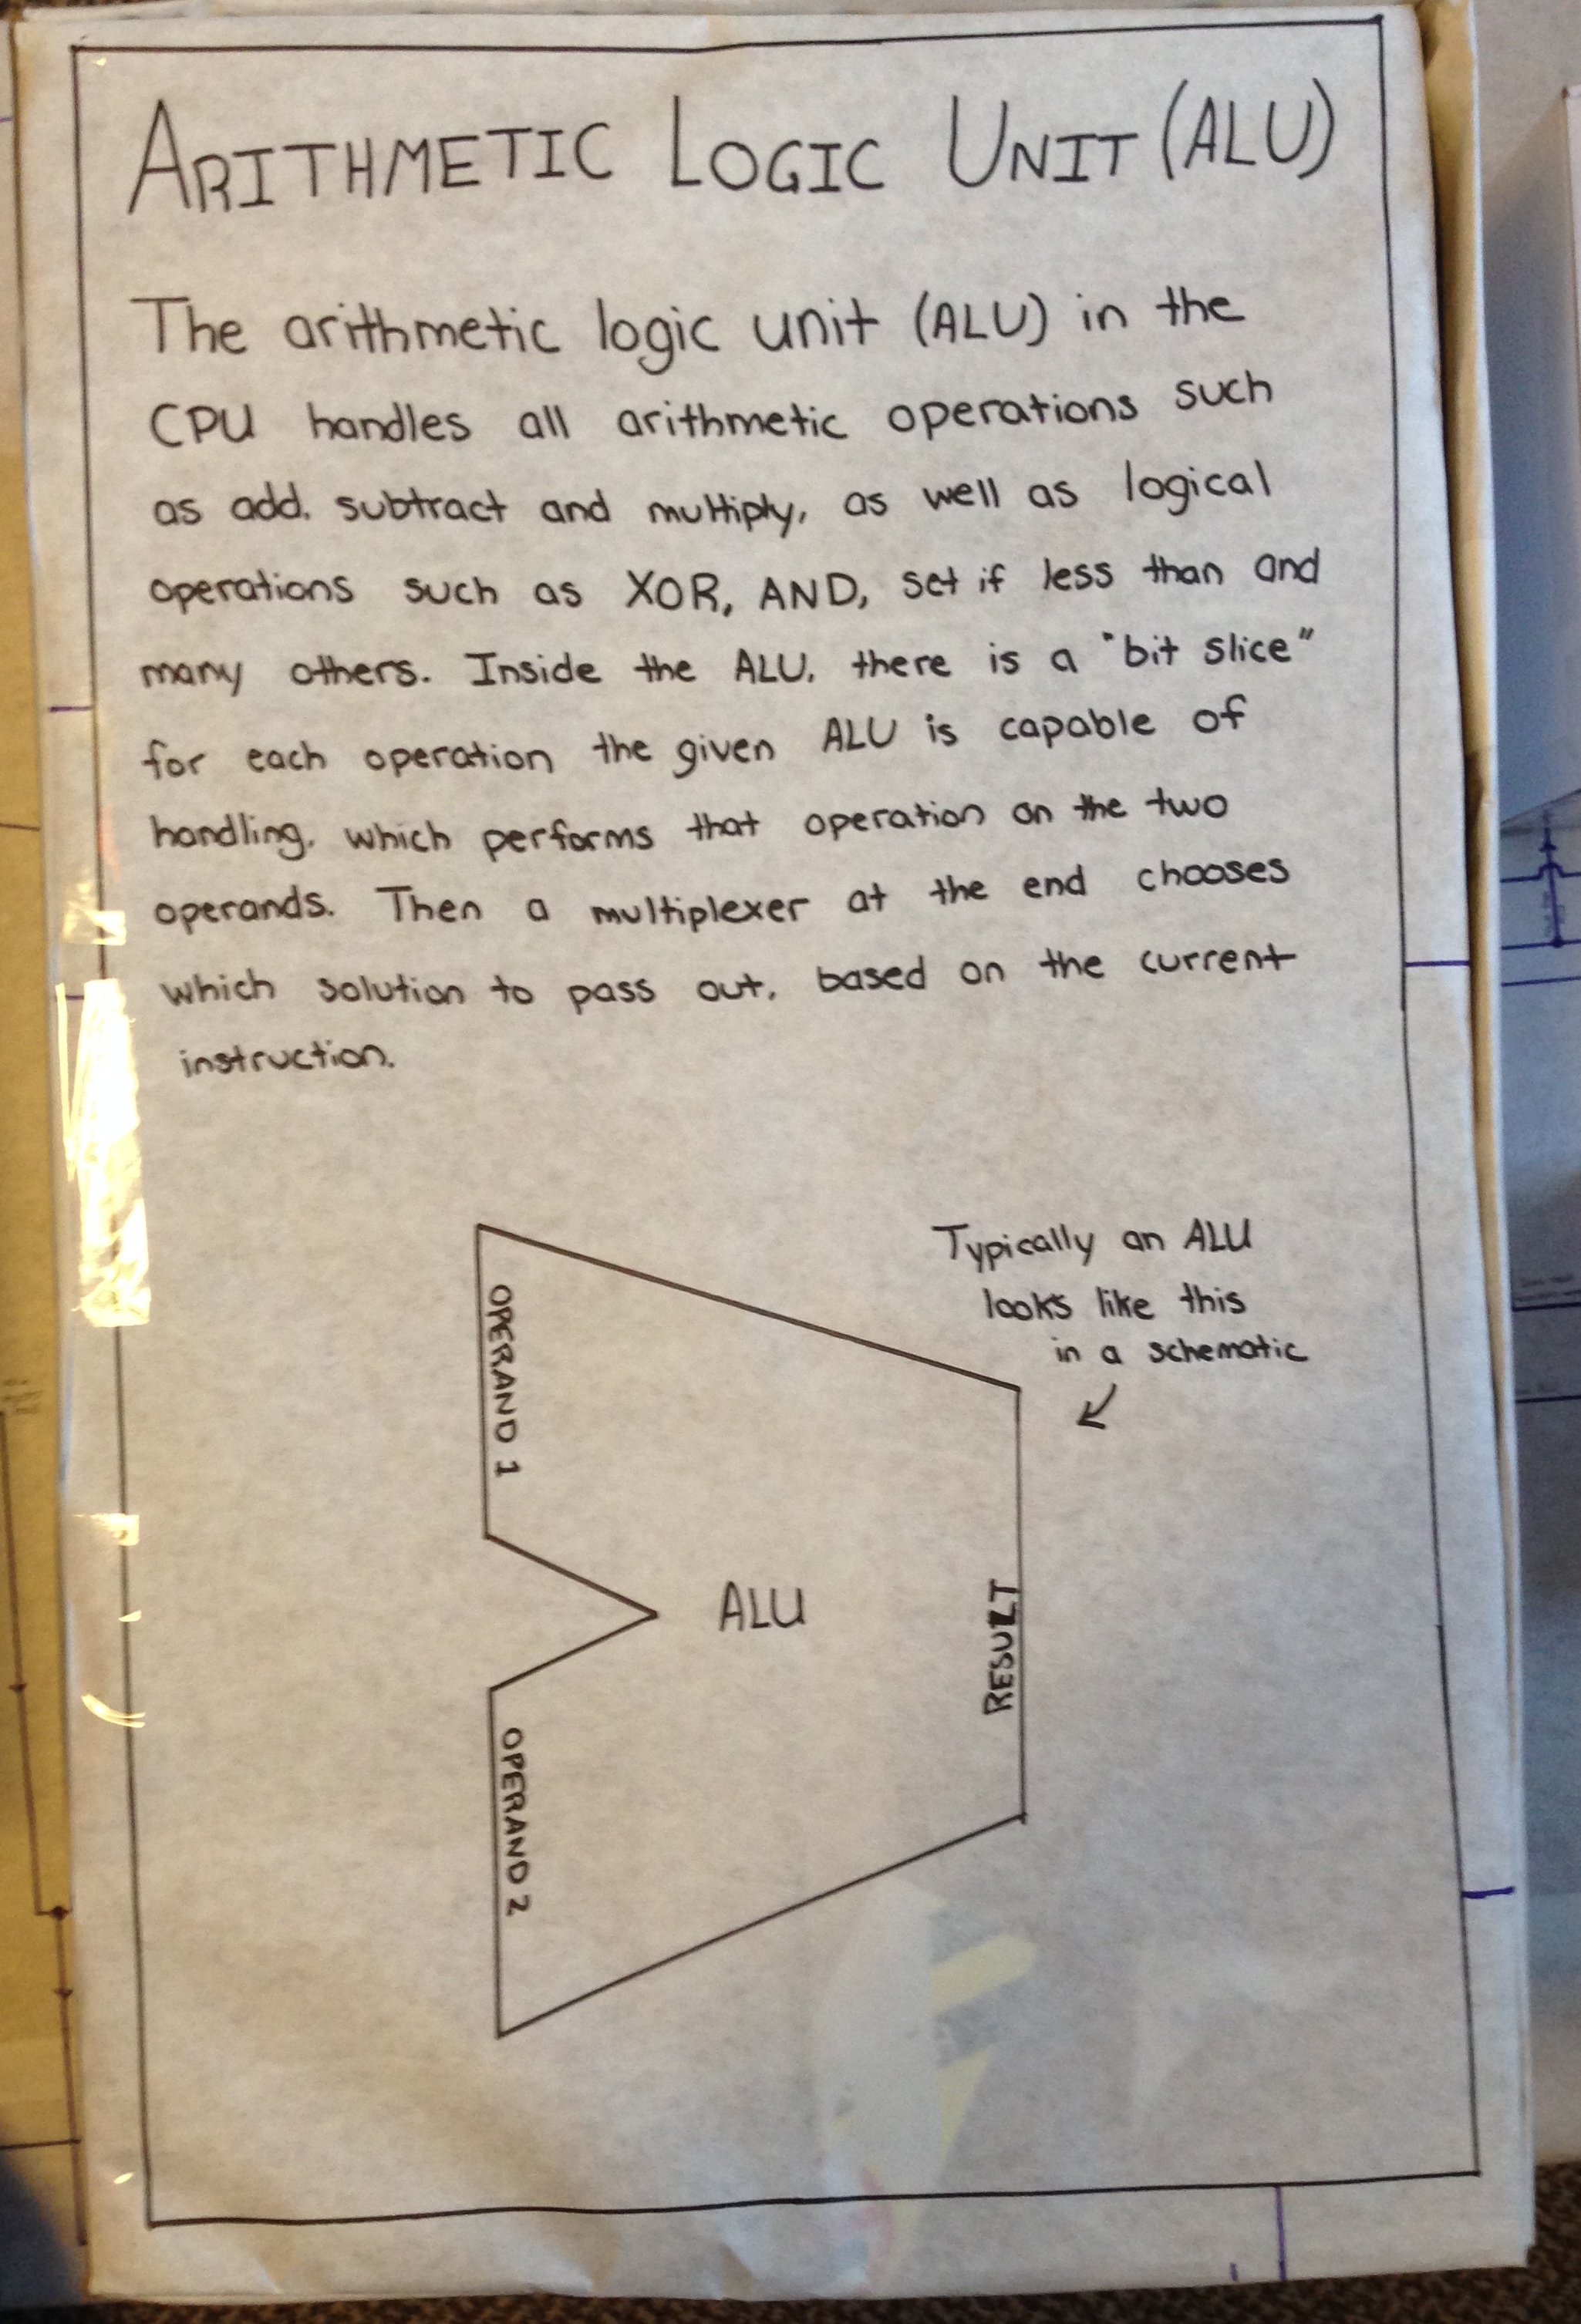 ARITHMETIC LOGIC UNIT (ALU)
The arithmetic logic unit (ALU) in the
CPU handles all arithmetic operations such
as add, subtract and multiply, as well as logical
operations such as XOR, AND, set if less than and
many others. Inside the ALU, there is a "bit slice"
for each operation the given ALU is capable of
handling, which performs that operation on the two
operands. Then a multiplexer at the end chooses
which solution to pass out, based on the current
instruction.
Typically an ALU
looks like this
in a schematic
OPERAND 1
ALU
RESULT
OPERAND 2